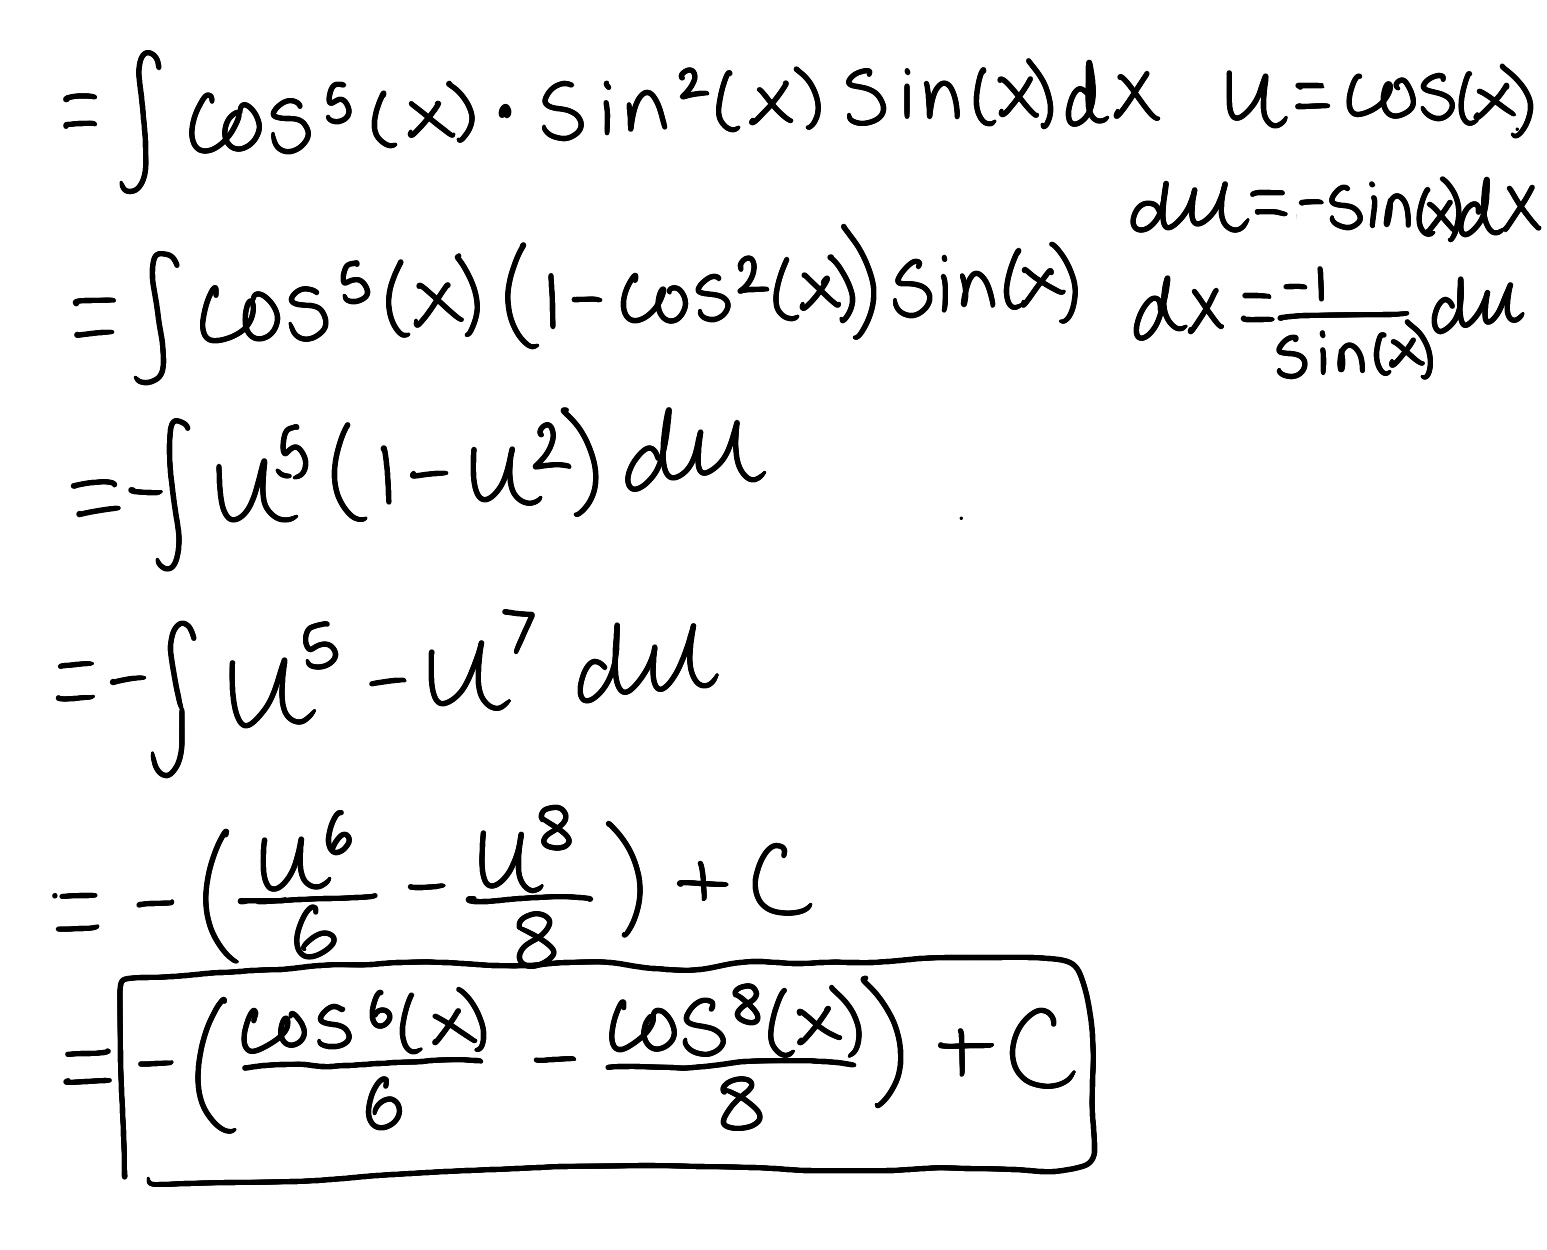 = ∫ cos⁵(x) · sin²(x) sin(x) dx   u = cos(x)
du = -sin(x)dx
= ∫ cos⁵(x) (1 - cos²(x)) sin(x)   dx = -1/sin(x) du
= -∫ u⁵ (1 - u²) du
= -∫ u⁵ - u⁷ du
= -(u⁶/6 - u⁸/8) + C
= -(cos⁶(x)/6 - cos⁸(x)/8) + C